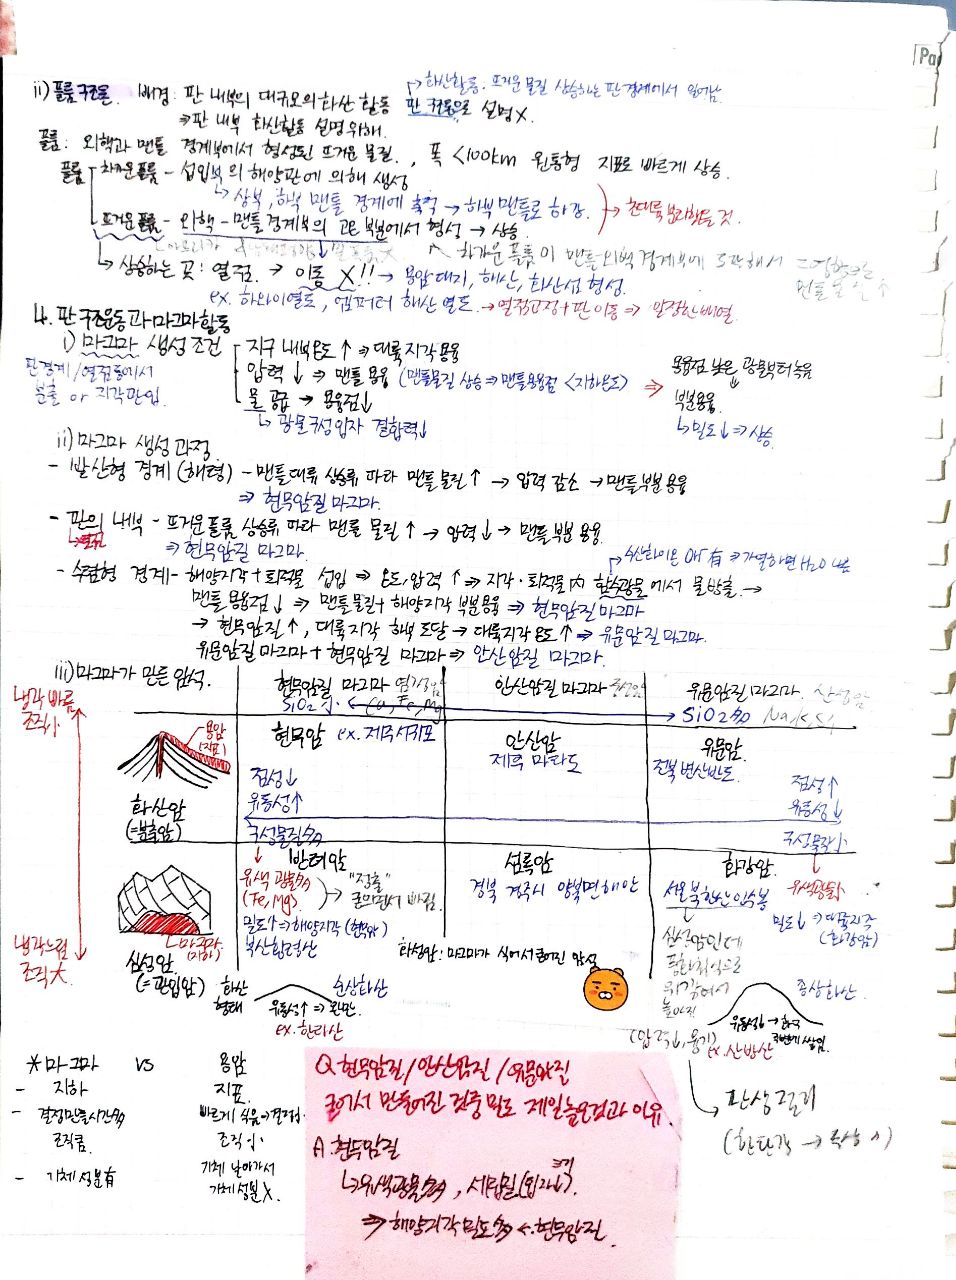 Pa
ii) 플룸 구조론. 배경: 판 내부의 대규모의 화산 활동
→ 화산활동: 뜨거운 물질 상승하는 판 경계에서 일어남
판 구조론으로 설명X.
⇒ 판 내부 화산활동 설명 위해.
플룸: 외핵과 맨틀 경계부에서 형성된 뜨거운 물질., 폭 <100km 원통형 지표로 빠르게 상승.
플룸 차가운플룸 - 섭입부의 해양판에 의해 생성
↳ 상부, 하부 맨틀 경계에 축적 → 하부 맨틀로 하강.
⇒ 초대륙 분리했을 것.
뜨거운플룸 - 외핵-맨틀경계부의 고온 부분에서 형성 → 상승.
차가운 플룸이 맨틀 외핵 경계부에 도달해서 그 영향으로 맨틀 물질 ↑
↳ 상승하는 곳: 열점. → 이동 X!! → 용암대지, 해산, 화산섬 형성.
ex. 하와이열도, 엠퍼러 해산 열도. → 열점고정+판 이동 ⇒ 일정한 배열.
4. 판 구조운동과 마그마활동
i) 마그마 생성 조건
지구 내부 온도 ↑ ⇒ 대륙지각 용융
압력 ↓ ⇒ 맨틀 용융 (맨틀물질 상승 ⇒ 맨틀용융점 <지하온도)
물 공급 → 용융점↓
↳ 광물구성입자 결합력↓
판경계/열점 등에서
분출 or 지각관입.
⇒ 용융점 낮은 광물부터 녹음
부분용융.
↳ 밀도↓ ⇒ 상승.
ii) 마그마 생성 과정
- 발산형 경계 (해령) - 맨틀대류 상승류 따라 맨틀 물질 ↑ → 압력 감소 → 맨틀 부분 용융
⇒ 현무암질 마그마.
- 판의 내부 - 뜨거운플룸 상승류 따라 맨틀 물질 ↑ → 압력 ↓ → 맨틀 부분 용융
↳ 열점
⇒ 현무암질 마그마.
수산화이온 OH⁻ 有 ⇒ 가열하면 H₂O 나옴
- 수렴형 경계 - 해양지각+퇴적물 섭입 ⇒ 온도/압력 ↑ ⇒ 지각·퇴적물 內 함수광물에서 물 방출 →
맨틀 용융점 ↓ ⇒ 맨틀물질+해양지각 부분용융 ⇒ 현무암질 마그마
→ 현무암질 ↑, 대륙지각 하부 도달 → 대륙지각 온도 ↑ ⇒ 유문암질 마그마.
유문암질 마그마 + 현무암질 마그마 ⇒ 안산암질 마그마.
iii) 마그마가 만든 암석.
현무암질 마그마 염기성암
안산암질 마그마 중성암
유문암질 마그마. 산성암
SiO₂ 小 Ca, Fe, Mg
SiO₂ 多 Na,K,Si
냉각 빠름
조직小
용암
(지표)
화산암
(=분출암)
현무암 ex. 제주 서귀포
점성↓
유동성↑
안산암
제주 마라도
유문암
전북 변산반도.
점성↑
유동성↓
구성물질 多
구성물질小
냉각느림
조직大
마그마
(지하)
심성암
(=관입암)
반려암
유색 광물多
(Fe, Mg)
"정출"
굳으면서 빠짐.
밀도↑ ⇒ 해양지각 (현무암)
부산 황령산
섬록암
경북 경주시 양북면 해안
화강암
서울 북한산 인수봉
유색광물小
밀도↓ ⇒ 대륙지각
(화강암)
화성암: 마그마가 식어서 굳어진 암석
심성암인데
융화침식으로
위 깎여서
높아진
(압력↓, 융기)
화산
형태
순상화산
유동성↑ ⇒ 완만.
ex. 한라산
종상화산.
ex. 산방산
판상절리
* 마그마 vs 용암
- 지하 지표.
- 결정만들시간多 빠르게 식음 ⇒ 결정小
조직큼. 조직 小
- 기체 성분 有 기체 날아가서
기체성분 X.
Q. 현무암질/안산암질/유문암질
굳어서 만들어진 것중 밀도 제일 높은것과 이유.
A. 현무암질
↳ 유색광물多, 세립질(입자小).
크기
⇒ 해양지각 밀도多 ← 현무암질